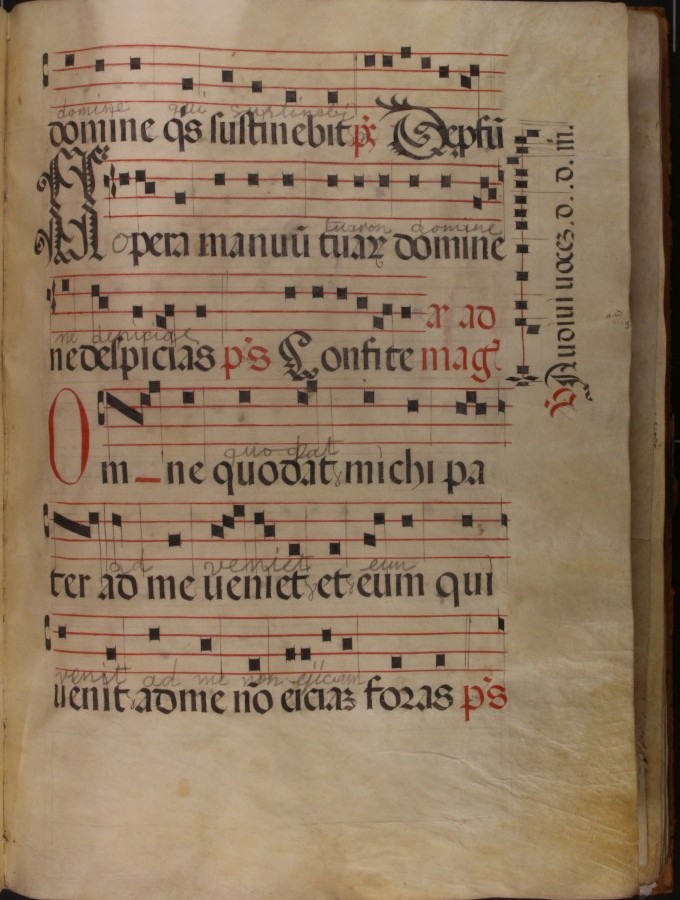 domine qui sustinebit
domine qs sustinebit ps De pfū
tuarum domine
Opera manuū tuaꝝ domine
ne despicias
ne despicias ps Confitemag
ar ad
quo dat
Om_ne quod dat michi pa
ad veniet eum
ter ad me ueniet et eum qui
venit ad me non ejiciam
uenit ad me nō eiciaꝫ foras ps
V Audiui uocez. d. . d. m.